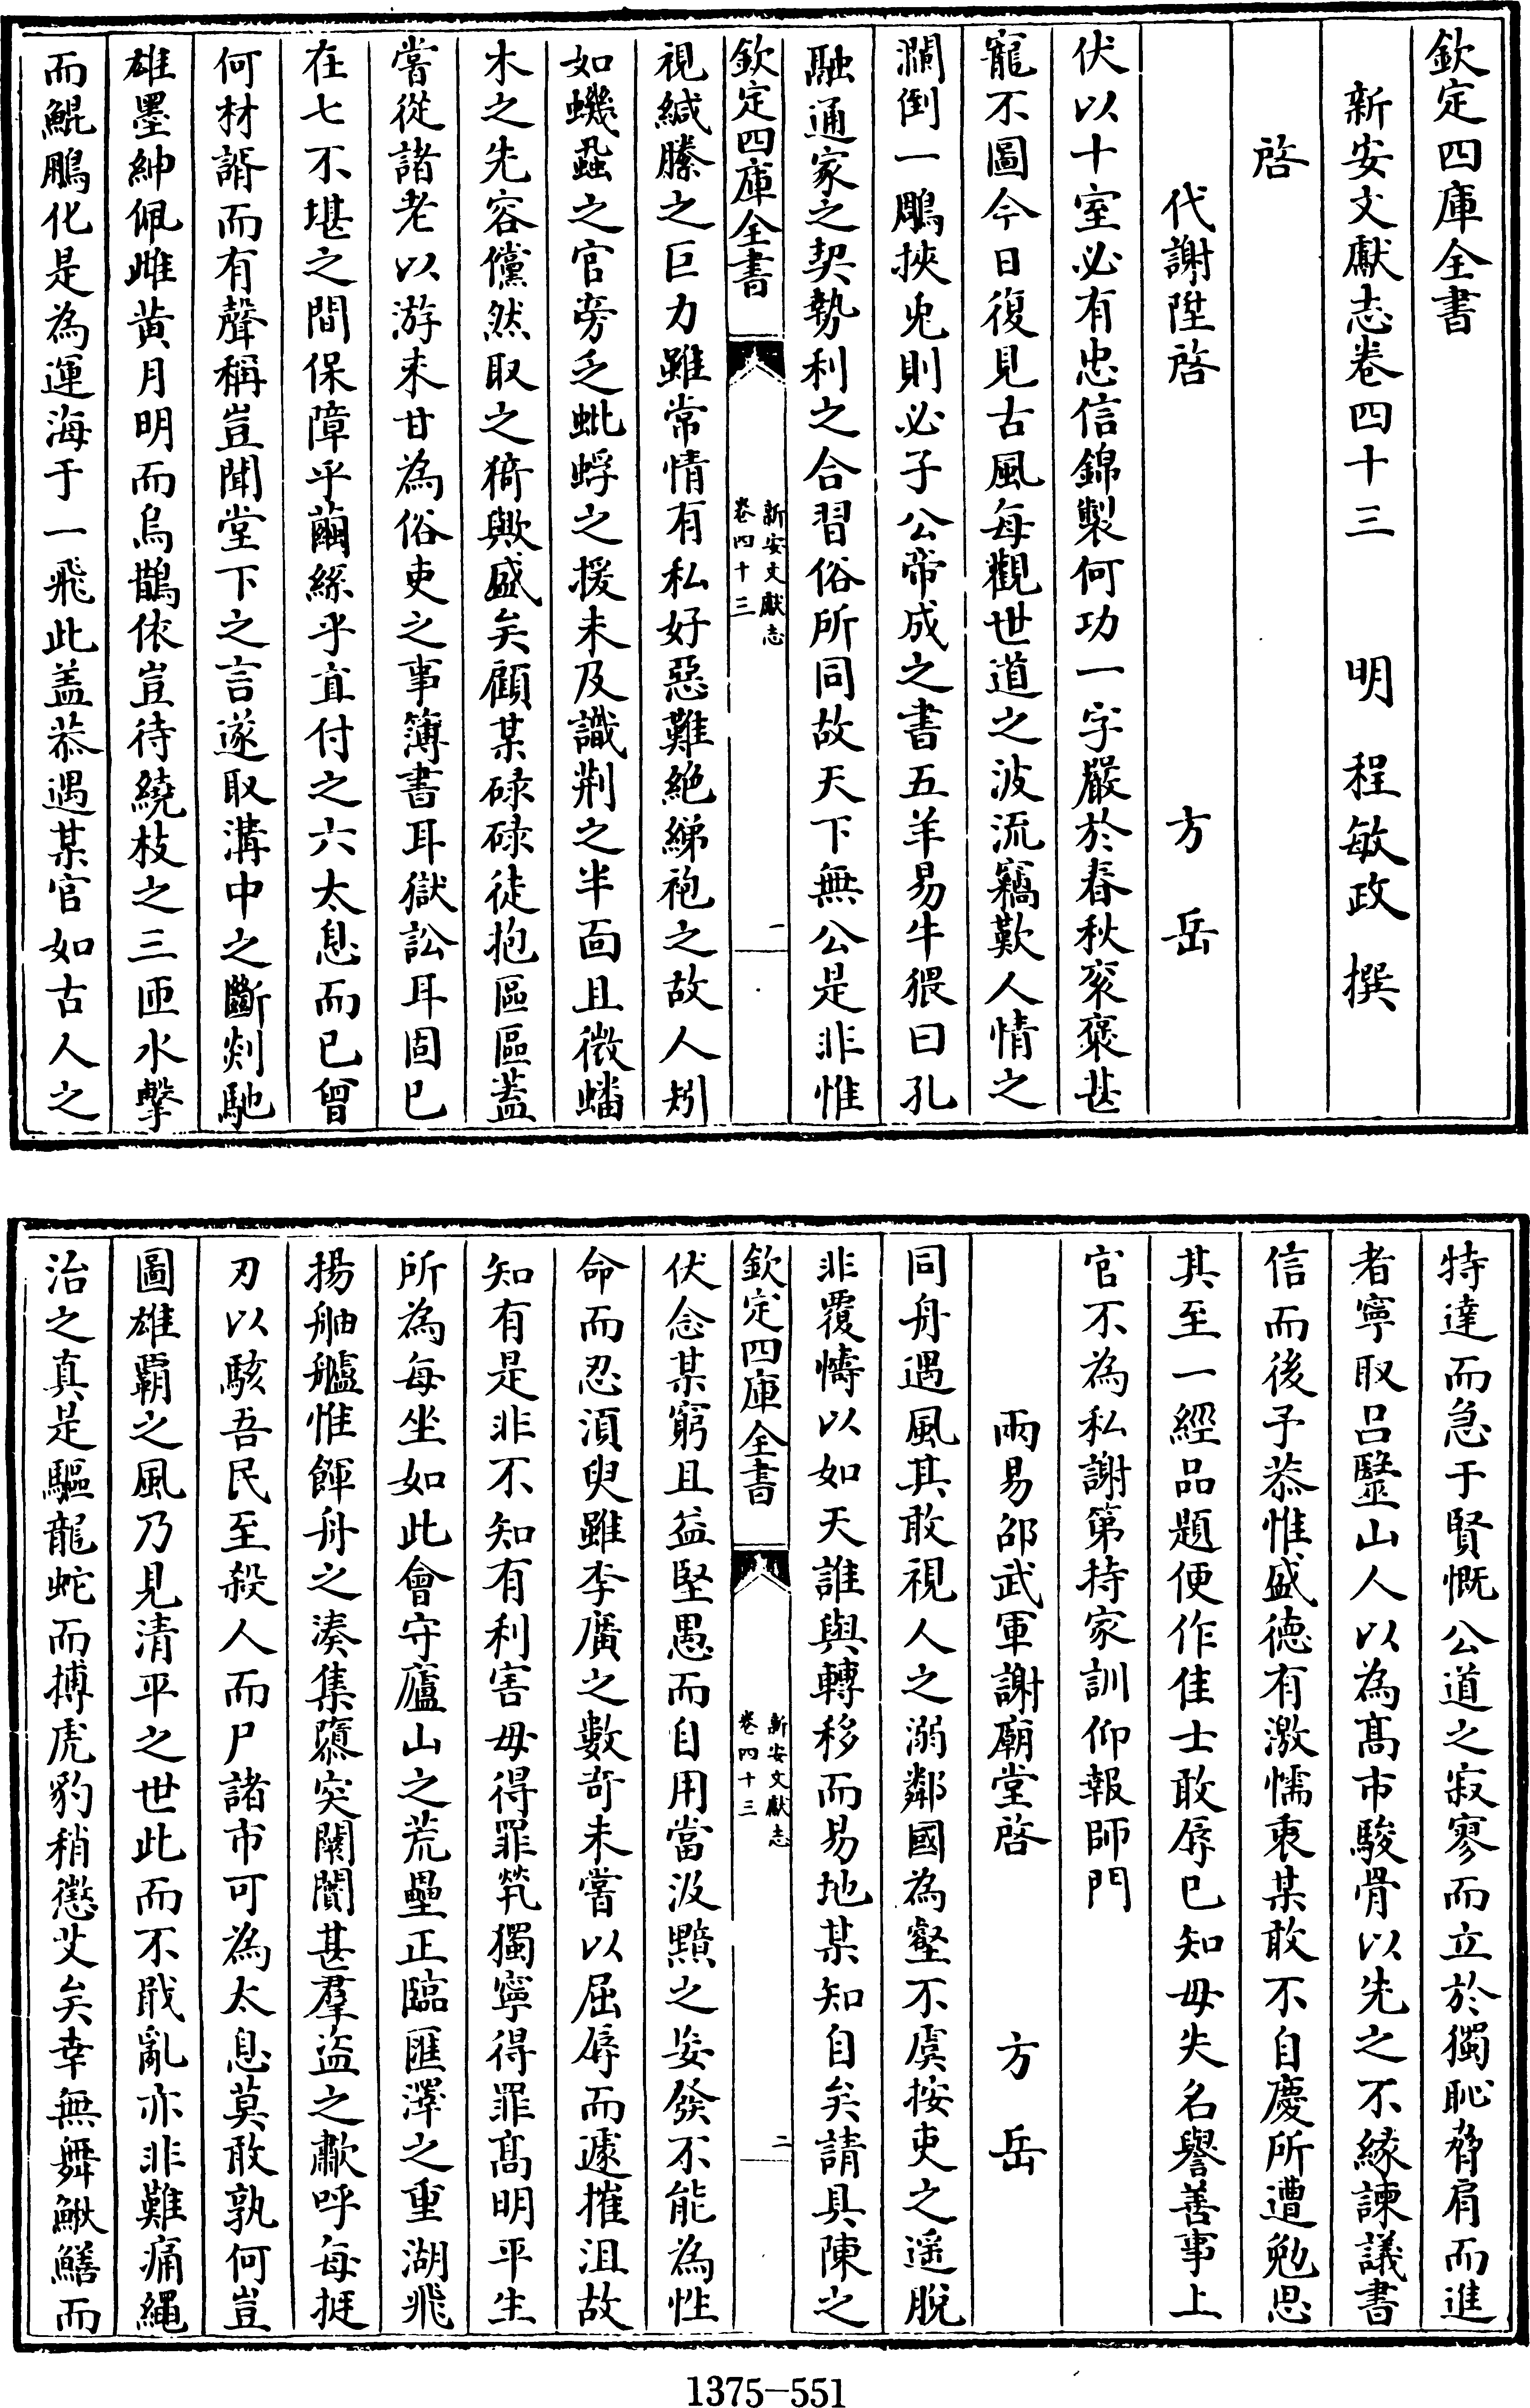 欽定四庫全書
新安文獻志卷四十三 明 程敏政 撰
啓
代謝陞啓 方岳
伏以十室必有忠信錦製何功一字嚴於春秋衮褒甚
寵不圖今日復見古風每觀世道之波流竊歎人情之
瀾倒一鵰挾兎則必子公帝成之書五羊易牛猥曰孔
融通家之契勢利之合習俗所同故天下無公是非惟
欽定四庫全書
新安文獻志
卷四十三
一
視緘縢之巨力雖常情有私好惡難絶綈袍之故人矧
如蟣蝨之官旁乏蚍蜉之援未及識荆之半面且微蟠
木之先容儻然取之猗歟盛矣顧某碌碌徒抱區區蓋
嘗從諸老以游来甘為俗吏之事簿書耳獄訟耳固已
在七不堪之間保障乎繭絲乎直付之六太息而已曾
何材諝而有聲稱豈聞堂下之言遂取溝中之斷剡馳
雄墨紳佩雌黄月明而烏鵲依豈待繞枝之三匝水擊
而鯤鵬化是為運海于一飛此盖恭遇某官如古人之
特達而急于賢慨公道之寂寥而立於獨恥脅肩而進
者寧取吕毉山人以為髙市駿骨以先之不緣諫議書
信而後予恭惟盛徳有激懦衷某敢不自慶所遭勉思
其至一經品題便作佳士敢辱已知毋失名譽善事上
官不為私謝第持家訓仰報師門
兩易邵武軍謝廟堂啓 方岳
同舟遇風其敢視人之溺鄰國為壑不虞按吏之遥脱
非覆幬以如天誰與轉移而易地某知自矣請具陳之
欽定四庫全書
新安文獻志
卷四十三
二
伏念某窮且益堅愚而自用當汲黯之妄發不能為性
命而忍湏臾雖李廣之數竒未嘗以屈辱而遽摧沮故
知有是非不知有利害毋得罪㷀獨寧得罪髙明平生
所為每坐如此會守廬山之荒壘正臨匯澤之重湖飛
揚舳艫惟餫舟之湊集隳突闤闠甚羣盗之歗呼每挺
刃以駭吾民至殺人而尸諸市可為太息莫敢孰何豈
圖雄覇之風乃見清平之世此而不戢亂亦非難痛繩
治之真是驅龍蛇而搏虎豹稍懲艾矣幸無舞鰍鱔而
1375-551